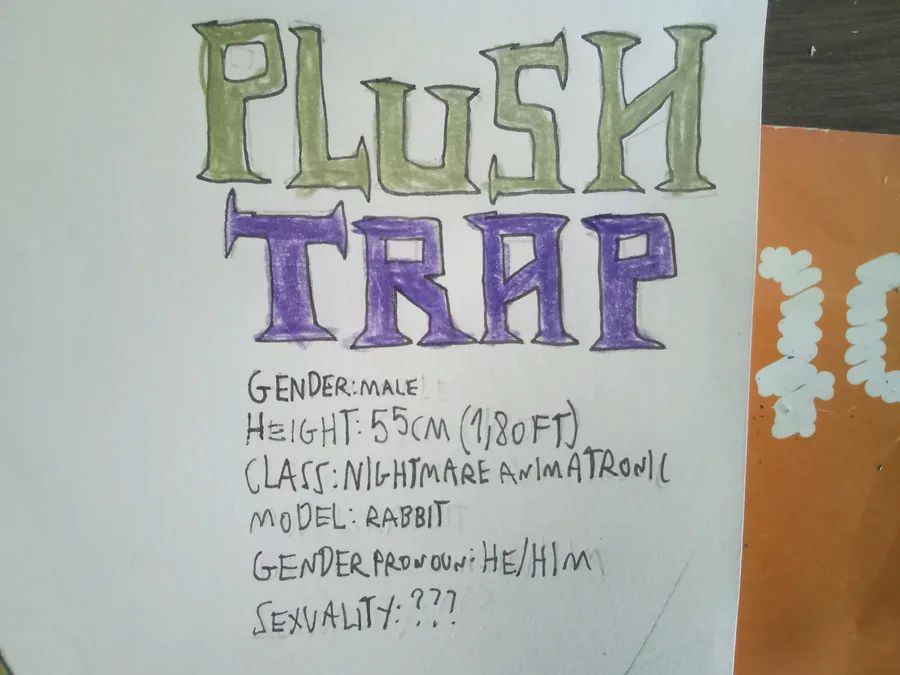 PLUSH
TRAP
GENDER:MALE
HEIGHT: 55CM (1,80FT)
CLASS:NIGHTMARE ANIMATRONIC
MODEL: RABBIT
GENDER PRONOUN: HE/HIM
SEXUALITY: ???